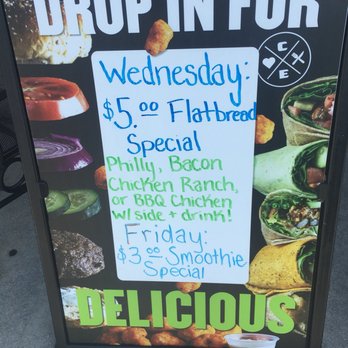 DROP IN FOR
C
E
Wednesday:
$5.00 Flatbread
Special
Philly, Bacon
Chicken Ranch,
or BBQ Chicken
w/ side + drink!
Friday:
$3.00 Smoothie
Special
DELICIOUS